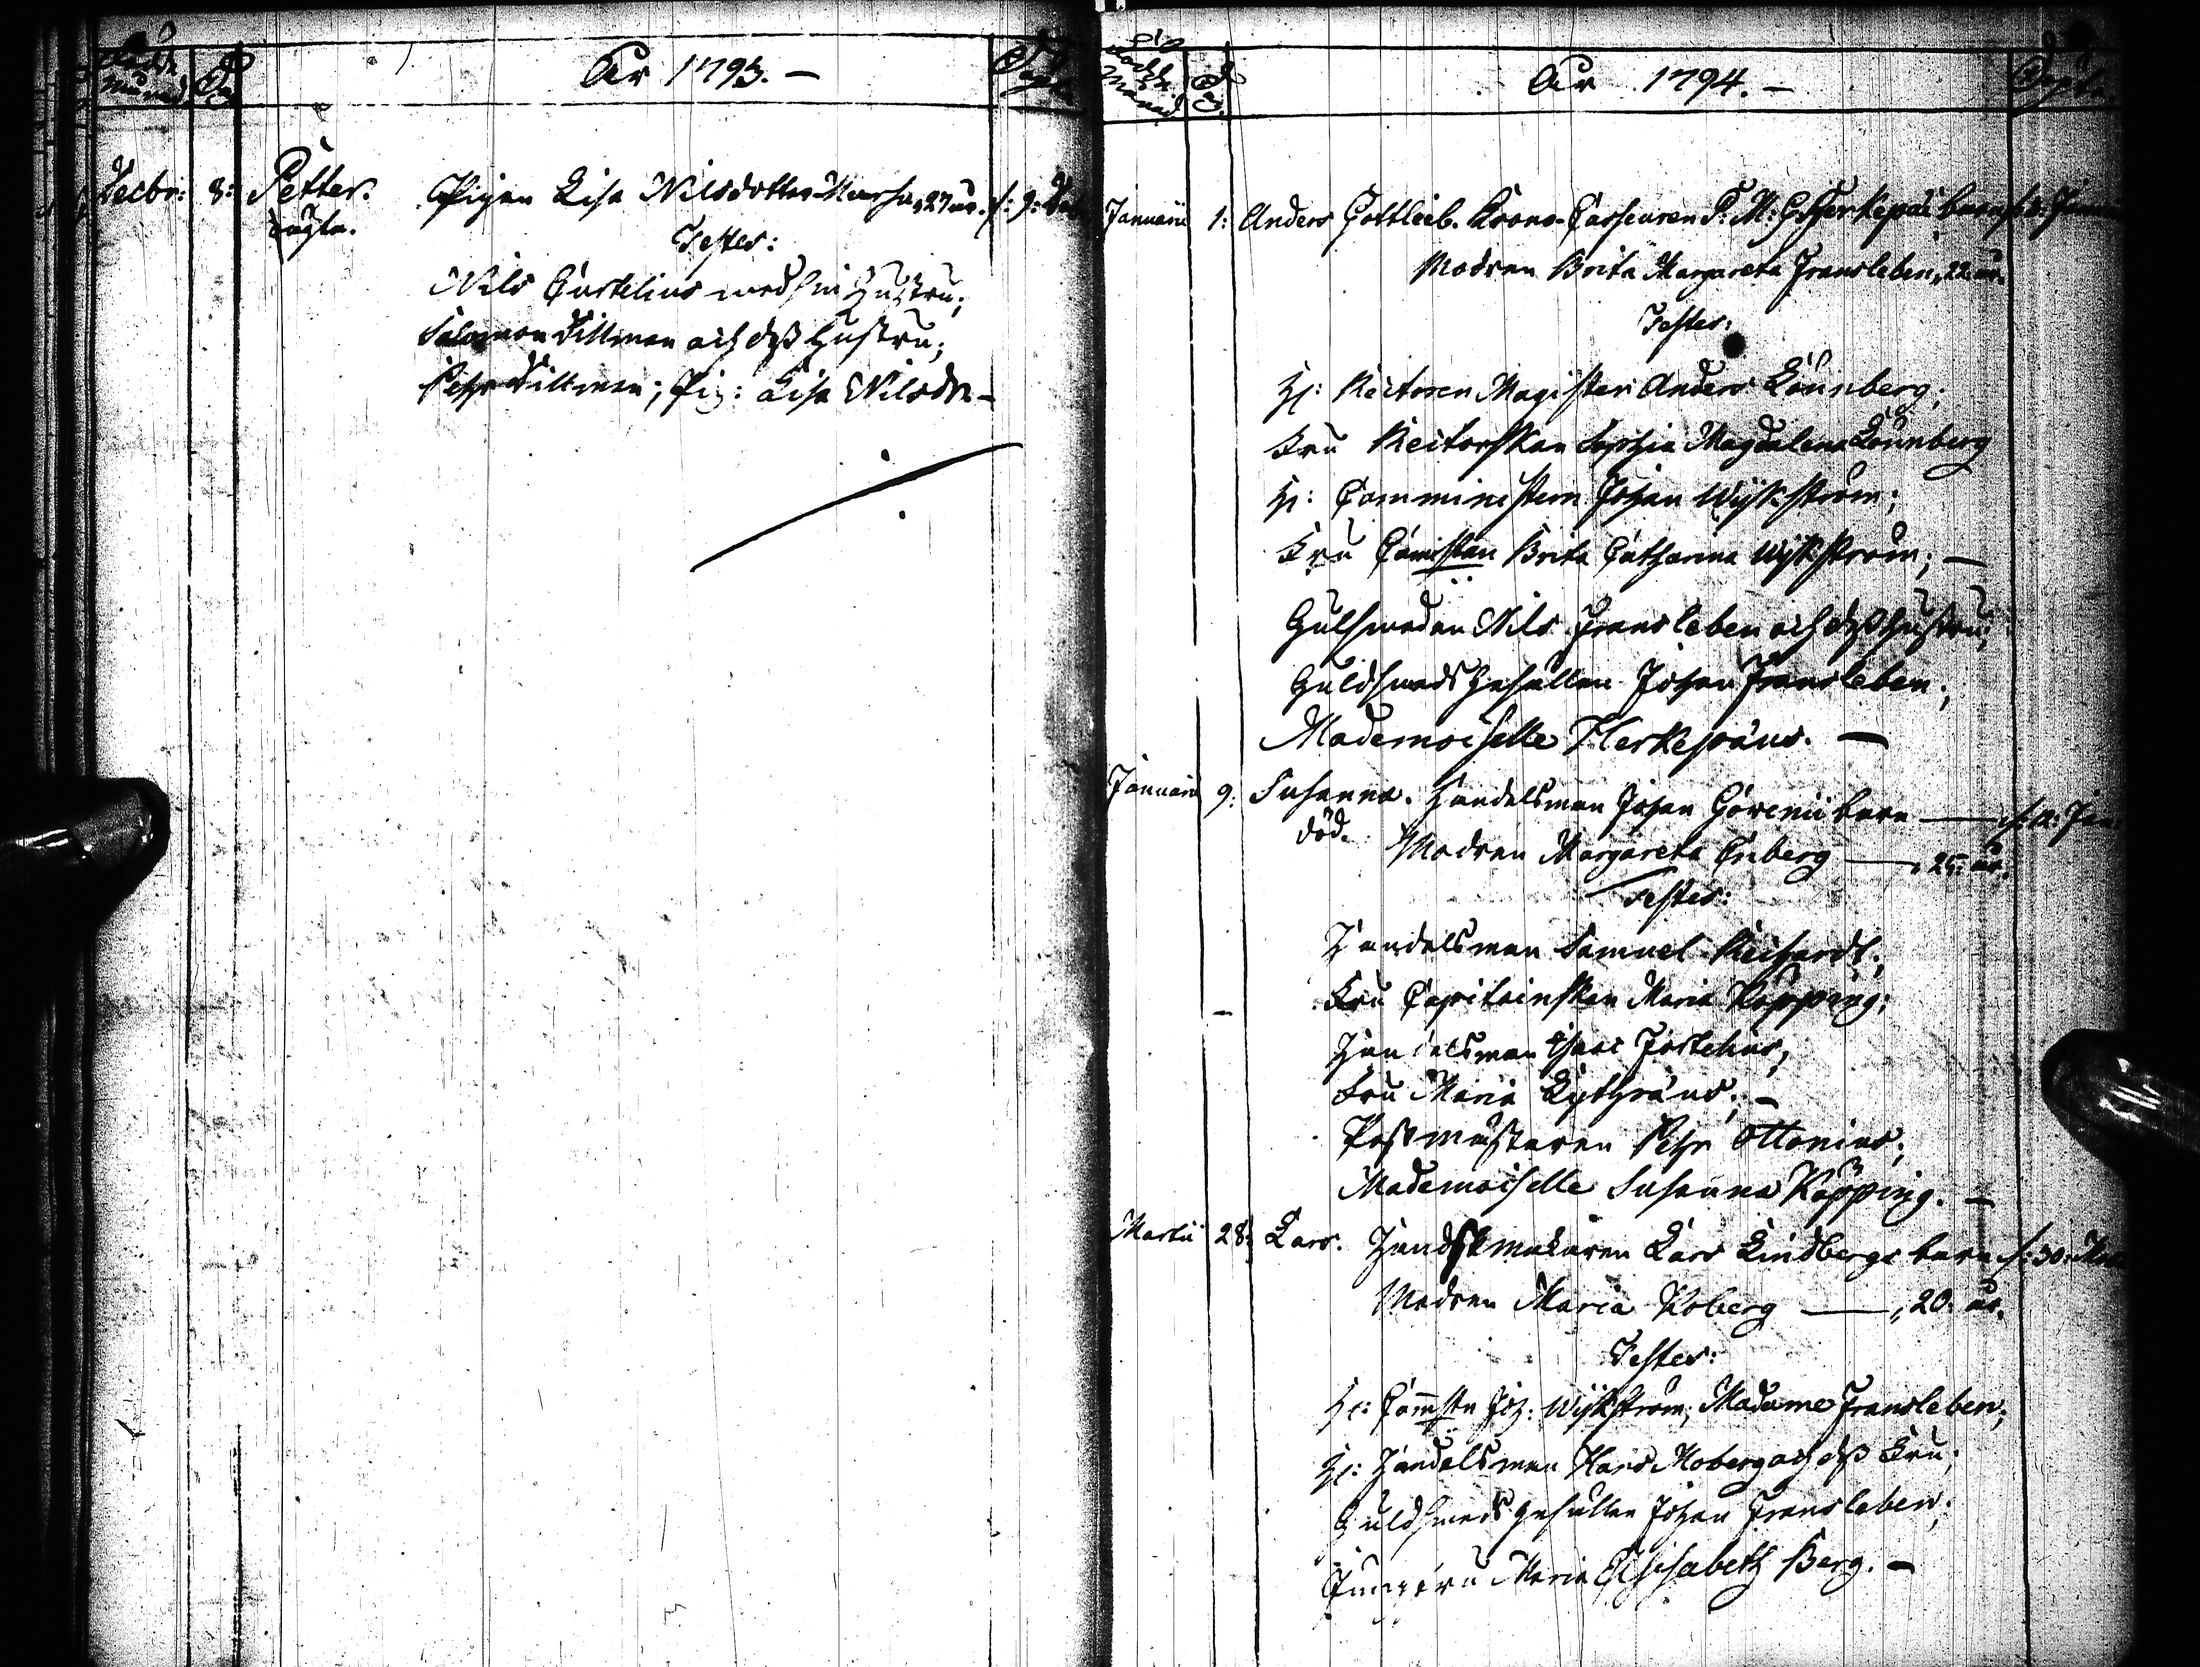 Födde
Månad
Dag
År 1793. —
Döpte
Decbr: 8: Petter. Pigan Lisa Nilsdotter 27 år. d: 9: Dec
oägta.
Testes:
Nils Curtelius med sin Hustru;
Salomon Dillman och dess Hustru;
Pehr Dillman; Pig: Lisa Nilsdr —
Födde
Månad
Dag
År 1794. —
Döpte
Januarii 1: Anders Gottlieb. Krono-Casseuren P. M: G. Herkepæi barn d: 2: Janu
Modren Brita Margareta Fransleben, 22 år.
Testes:
Hr: Rectoren Magister Anders Lönnberg;
Fru Rectorskan Sophia Magdalena Lönnberg
Hr: Comministern Johan Wijkström;
Fru Comistskan Brita Catharina Wijkström; —
Gulsmeden Nils Fransleben och dess Hustru;
Guldsmeds Gesällen Johan Fransleben;
Mademoiselle Herkepæus. —
Januarii 9: Susanna. Handelsman Johan Govenii barn — d: 12: Jan
död. Modren Margareta Enberg — 25: år.
Testes:
Handelsman Samuel Reichardt;
Fru Capitainskan Maria Köpping;
Handelsman Isaac Fortelius;
Fru Maria Lythræus; —
Postmästaren Pehr Ottonius;
Mademoiselle Susanna Köpping. —
Martii 28: Lars. Handskmakaren Lars Lindbergs barn d: 30: Mar
Modren Maria Noberg — 20: år.
Testes:
Hr: Comstn Joh: Wijkström; Madame Fransleben;
Hr: Handelsman Hans Moberg och dess Fru;
Guldsmeds gesällen Johan Fransleben;
Jungfru Maria Elisabeth Berg. —